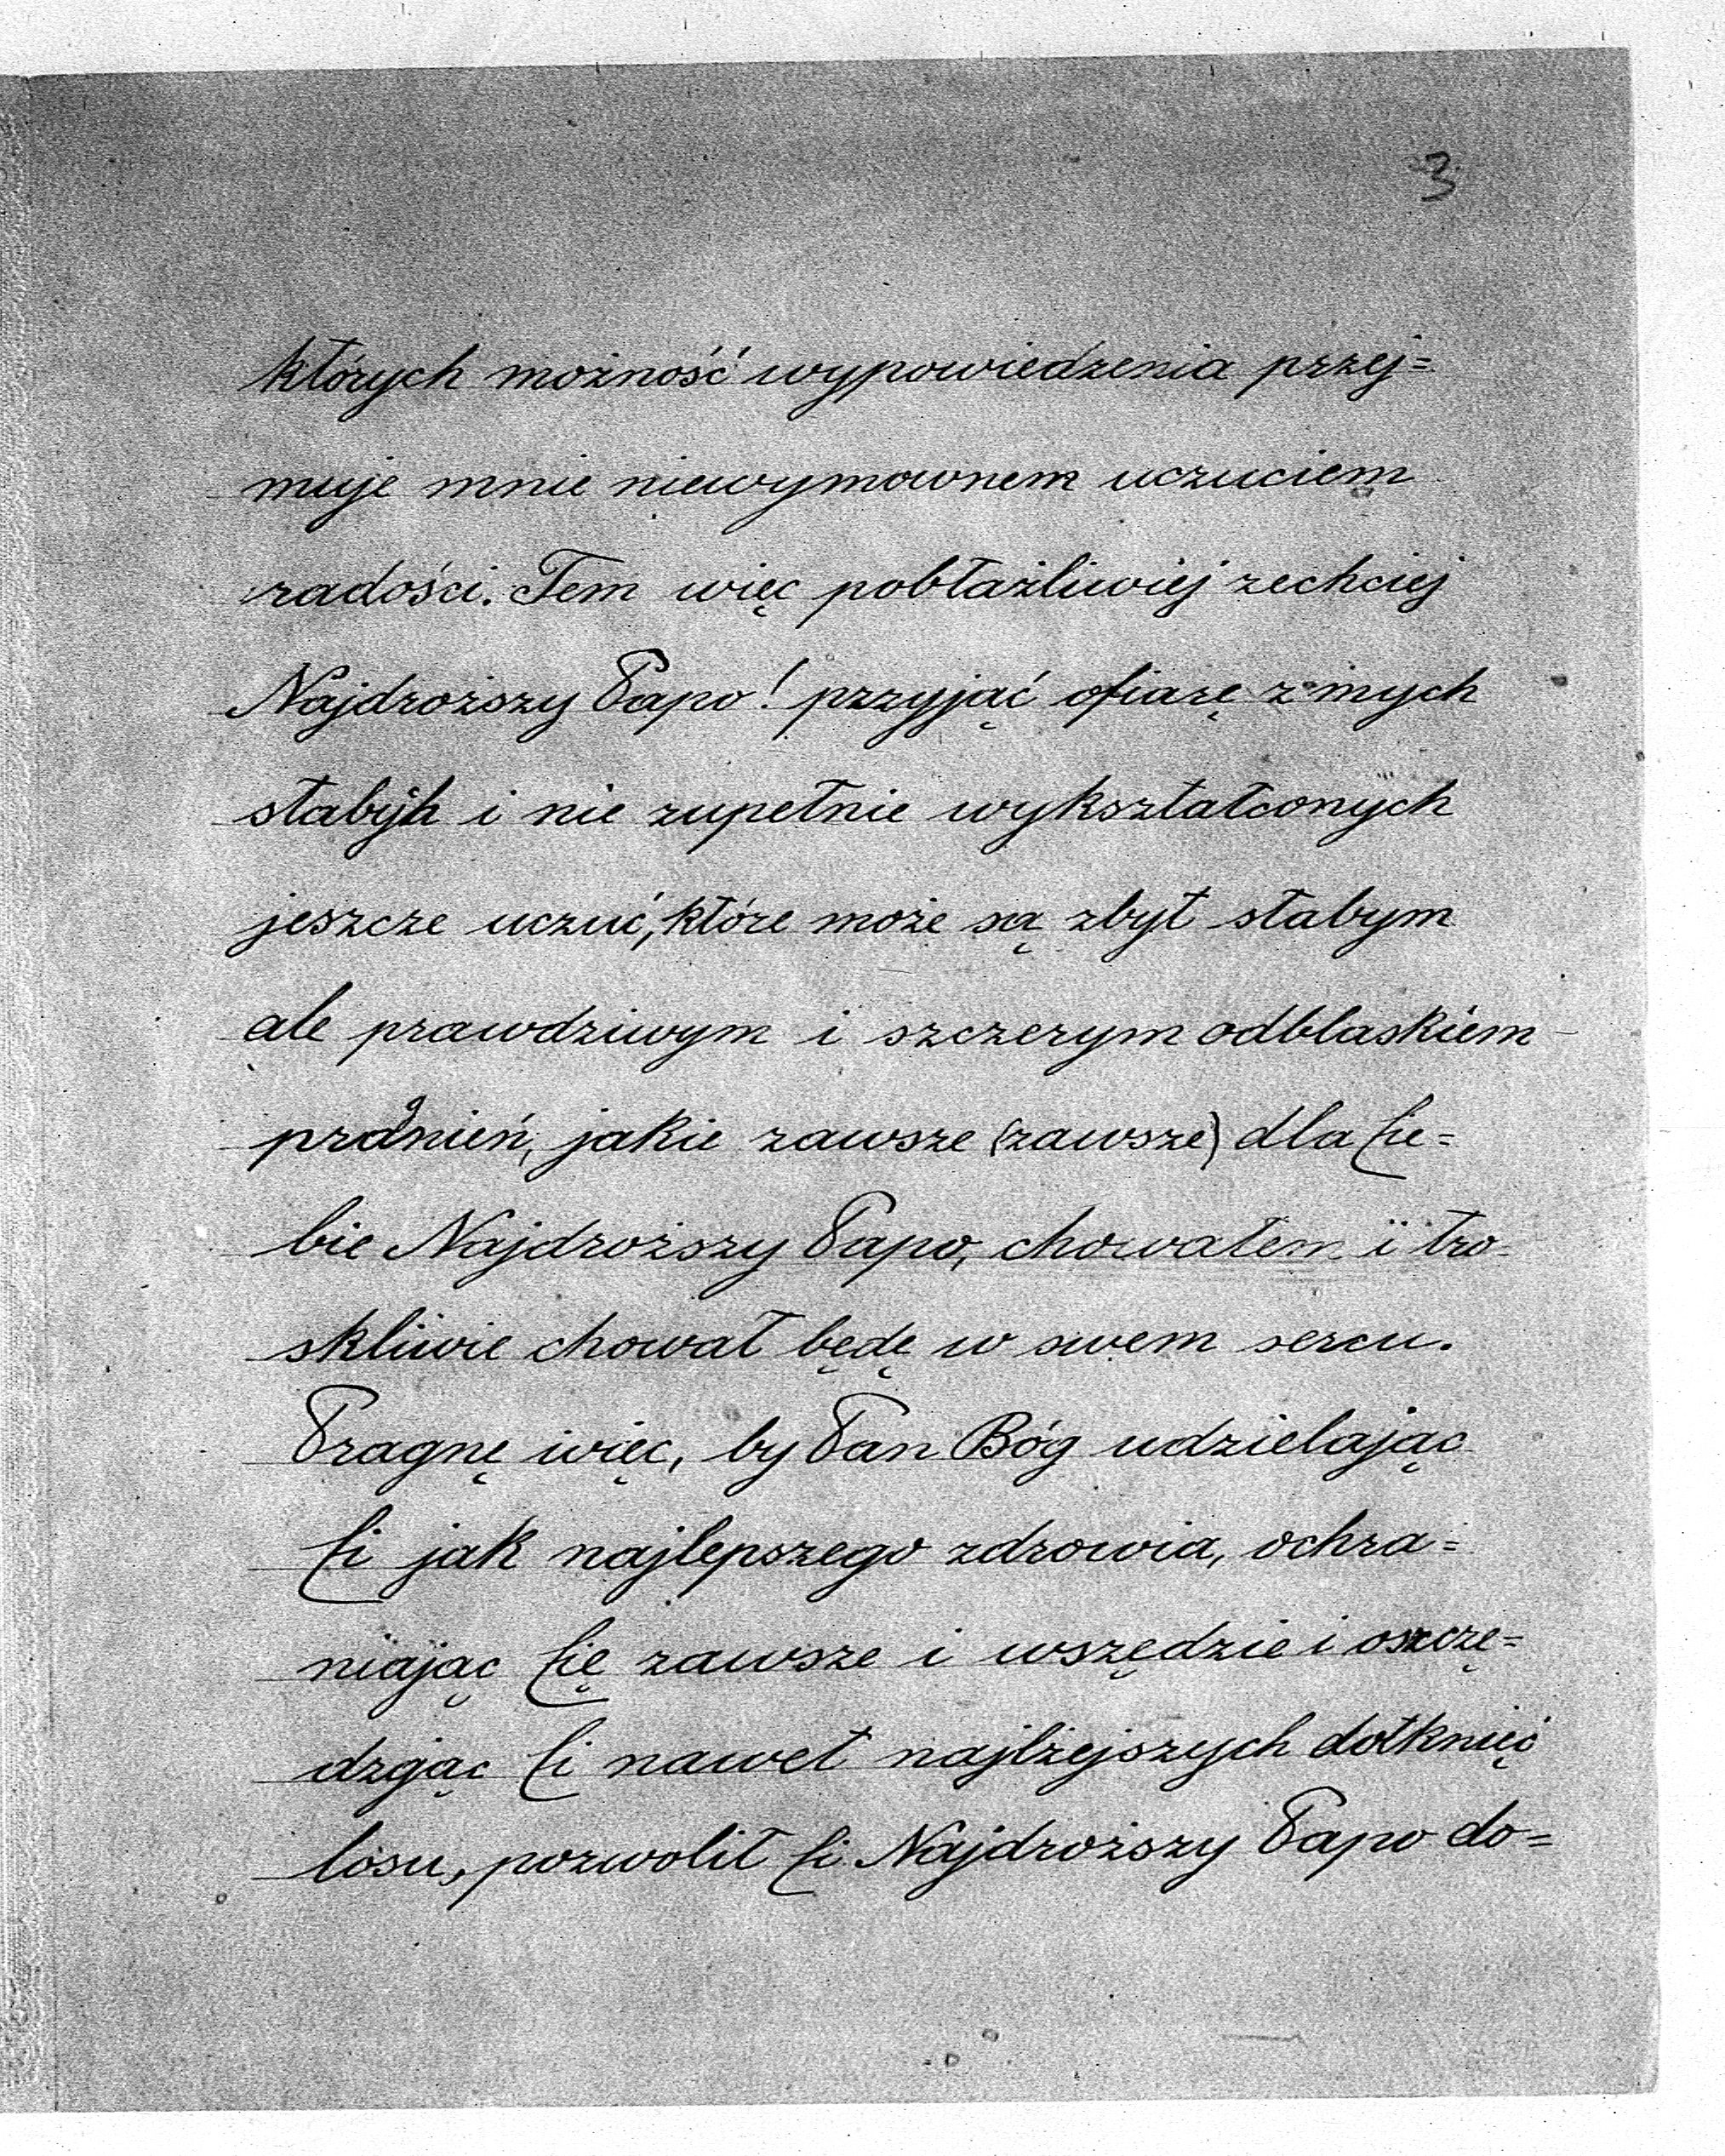 3
których możność wypowiedzenia przej=
muje mnie niewymownem uczuciem
radości. Tem więc pobłażliwiej zechciej
Najdroższy Papo! przyjąć ofiarę z mych
słabyh i nie zupełnie wykształconych
jeszcze uczuć, które może są zbyt słabym
ale prawdziwym i szczerym odblaskiem
pragnień, jakie zawsze (zawsze) dla Cie=
bie Najdroższy Papo, chowałem i tro-
skliwie chował będę w swem sercu.
Pragnę więc, by Pan Bóg udzielając
Ci jak najlepszego zdrowia, ochra=
niając Cię zawsze i wszędzie i oszczę=
dzając Ci nawet najlżejszych dotknięć
losu, pozwolił Ci Najdroższy Papo do=